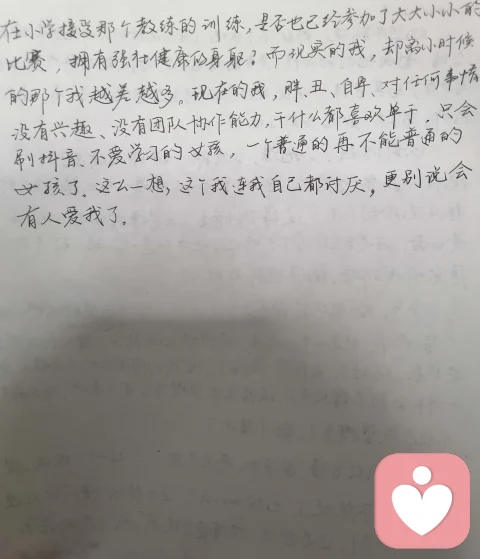 在小学接受那个教练的训练,是否也已经参加了大大小小的
比赛,拥有强壮健康的身躯?而现实的我,却离小时候
的那个我越差越多。现在的我,胖、丑、自卑、对任何事情
没有兴趣、没有团队协作能力,干什么都喜欢单干,只会
刷抖音、不爱学习的女孩,一个普通的再不能普通的
女孩了。这么一想,这个我连我自己都讨厌,更别说会
有人爱我了。